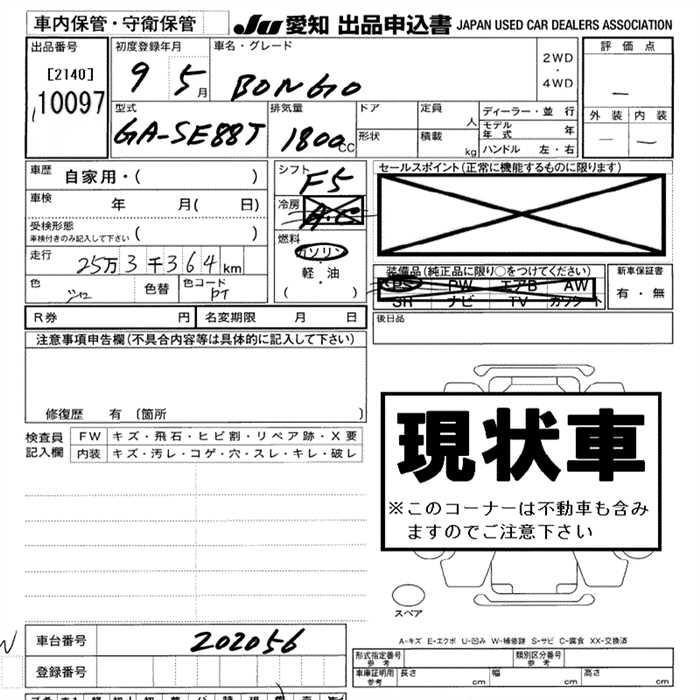 車内保管・守衛保管
JU 愛知 出品申込書 JAPAN USED CAR DEALERS ASSOCIATION
出品番号
[2140]
10097
初度登録年月
9 5月
車名・グレード
BONGO
2WD
・
4WD
評価点
—
外装 内装
— —
型式
GA-SE88T
排気量
1800cc
ドア
形状
定員
人
積載
kg
ディーラー・並行
モデル年式 年
ハンドル 左・右
車歴
自家用・( )
車検
年 月( 日)
受検形態
車検付きのみ記入して下さい ( )
走行
25万3千364km
色
色替
色コード
PT
シフト
F5
冷房
燃料
ガソリン
・
軽・油
( )
セールスポイント(正常に機能するものに限ります)
装備品(純正品に限り○をつけてください)
PS PW エアB AW
SR ナビ TV カワシート
新車保証書
有・無
R券 円
名変期限 月 日
後日品
注意事項申告欄(不具合内容等は具体的に記入して下さい)
修復歴 有 〔箇所 〕
検査員
記入欄
FW キズ・飛石・ヒビ割・リペア跡・X要
内装 キズ・汚レ・コゲ・穴・スレ・キレ・破レ
現状車
※このコーナーは不動車も含み
ますのでご注意下さい
スペア
A-キズ E-エクボ U-凹み W-補修跡 S-サビ C-腐食 XX-交換済
車台番号
202056
登録番号
形式指定番号
参考
類別区分番号
参考
車庫証明用
参考
長さ cm
幅 cm
高さ cm